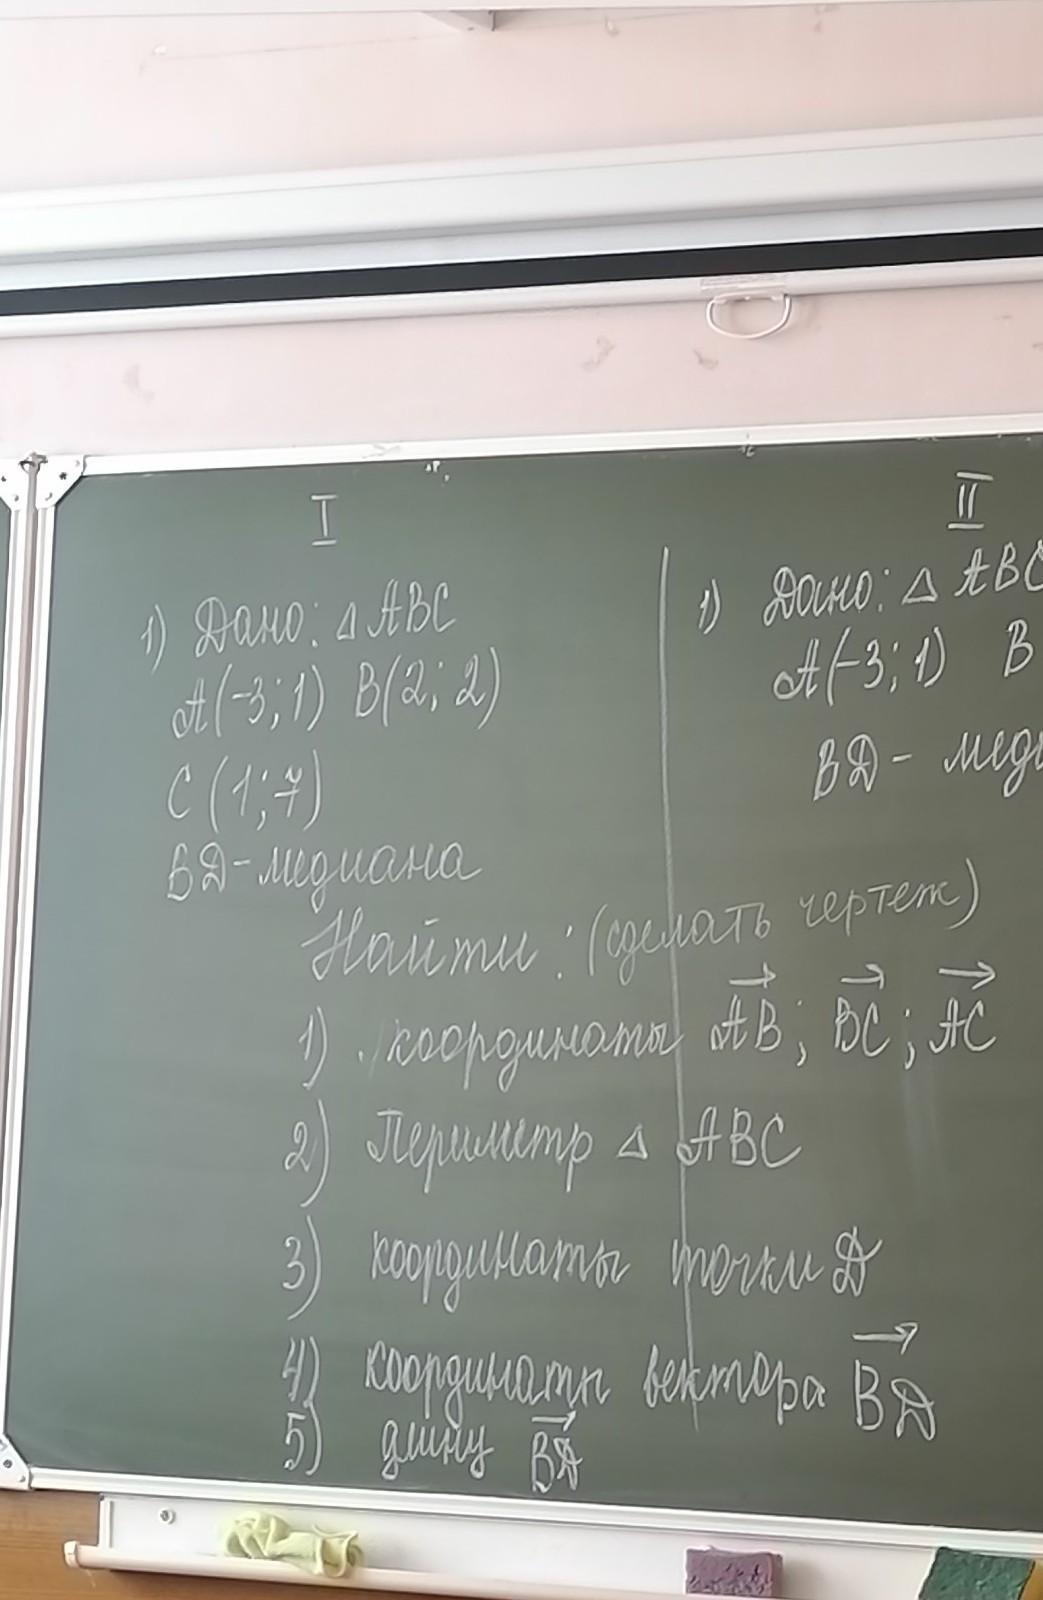 I
1) Дано: △ ABC
A(-3; 1) B(2; 2)
C (1; 7)
BD - медиана
II
1) Дано: △ ABC
A(-3; 1) B
BD -
Найти: (сделать чертеж)
1) координаты AB; BC; AC
2) Периметр △ ABC
3) координаты точки D
4) координаты вектора BD
5) длину BD